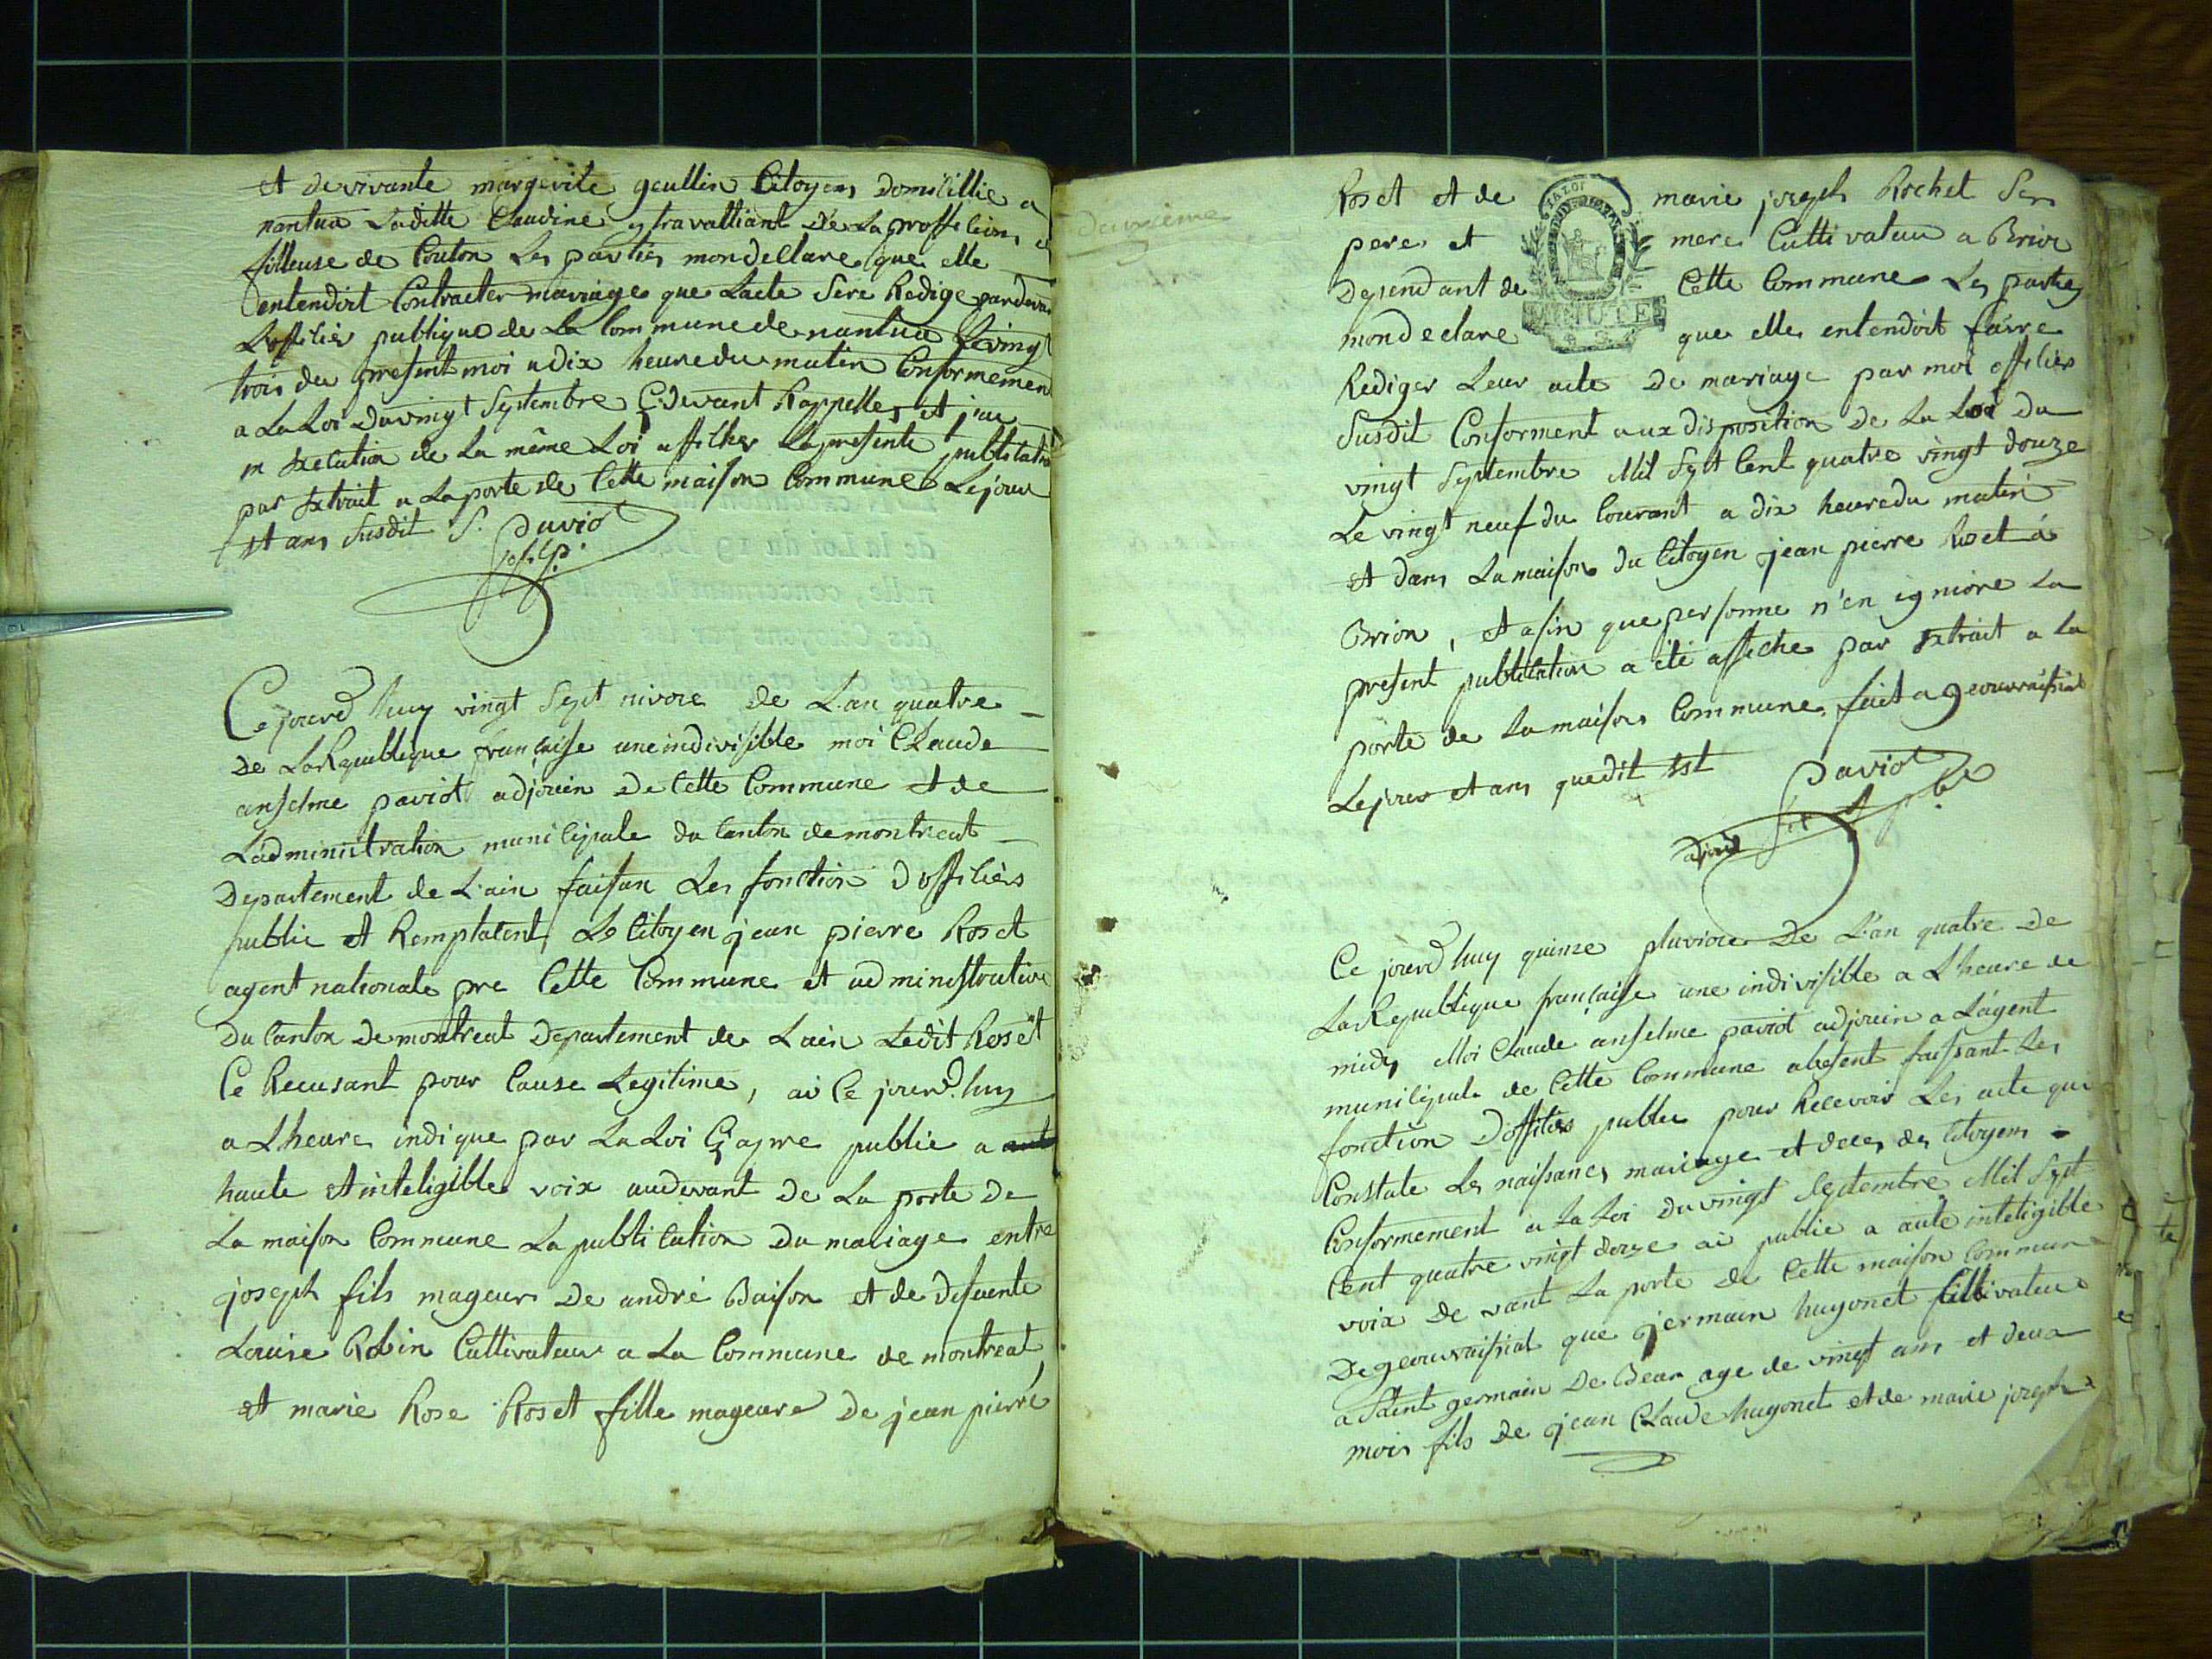 et de vivante margerite geullin Citoyens domicillie a
nantua Laditte Claudine y travalliant de la proffesion
filleuse de Couton Les parties mon dellare que elle
entendoit Contracter mariage que Lacte sere Redige par deva
Loffilier publique de La Commune de nantua Le ving
trois du present moi a dix heure du matin Conformemen
a La Loi du vingt Septembre Ci devant Rappelle, et j'ai
en Execution de La même Loi affiher La presente publicatio
par Extrait a La porte de Cette maison Commune Le jour
et ans Susdit S. paviot
of. p.
Ce jourd huy vingt Sept nivore de L'an quatre
de La Republique française une indivisible moi Claude
anselme paviot adjouin de Cette Commune et de
Ladministration municipale du Canton de montreat
Departement de L'ain faisan Les fonction doffiliers
public et Remplacent Le Citoyen jean pierre Roset
agent nationale pre Cette Commune et administrative
du Canton de montreat Departement de Lain Ledit Roset
Ce Recusant pour Cause Legitime, ai Ce jourd. huy
a L'heure indique par La Loi Ci apre public a
haute et inteligible voix audevant de La porte de
La maison Commune La publication du mariage entre
joseph fils mageur de andré Baison et de defuente
Louise Robin Cultivateur a La Commune de montreat
et marie Rose Roset fille mageure de jean pierre
Deuxieme
Roset et de marie joseph Rochet Ses
LA LOI
pere et mere Cultivateur a Brion
Dependant de Cette Commune Les partie
MINUTE
mon declare que elle entendoit faire
Rediger Leur acte de mariage par moi offilier
Susdit Conforment aux disposition de La Loi du
vingt Septembre Mil Sept Cent quatre vingt douze
Le vingt neuf du Courant a dix heure du matin
et dans La maison du Citoyen jean pierre Roset a
Brion, et afin que personne n'en igniore La
present publication a été affiche par Extrait a La
porte de La maison Commune, fait a geouvraissiat
Le jour et ans que dit Est paviot
adjoin
Ce jourd huy quinze pluviose de L'an quatre de
La Republique française une indivisible a L'heure de
midi, Moi Claude anselme paviot adjouin a L'agent
municipale de Cette Commune abesent faissant Les
fonction d'offilier public pour Recevoir Les acte qui
Constate Les naissance, mariage et deces des Citoyens
Conformement a La Loi du vingt Septembre Mil Sept
Cent quatre vingt douze ai public a aute inteligible
voix de vant La porte de Cette maison Commun
De geouvraissiat que germain hugonet Cultivateur
a Saint germain de Bear age de vingt ans et deux
mois fils de jean Claude hugonet et de marie joseph